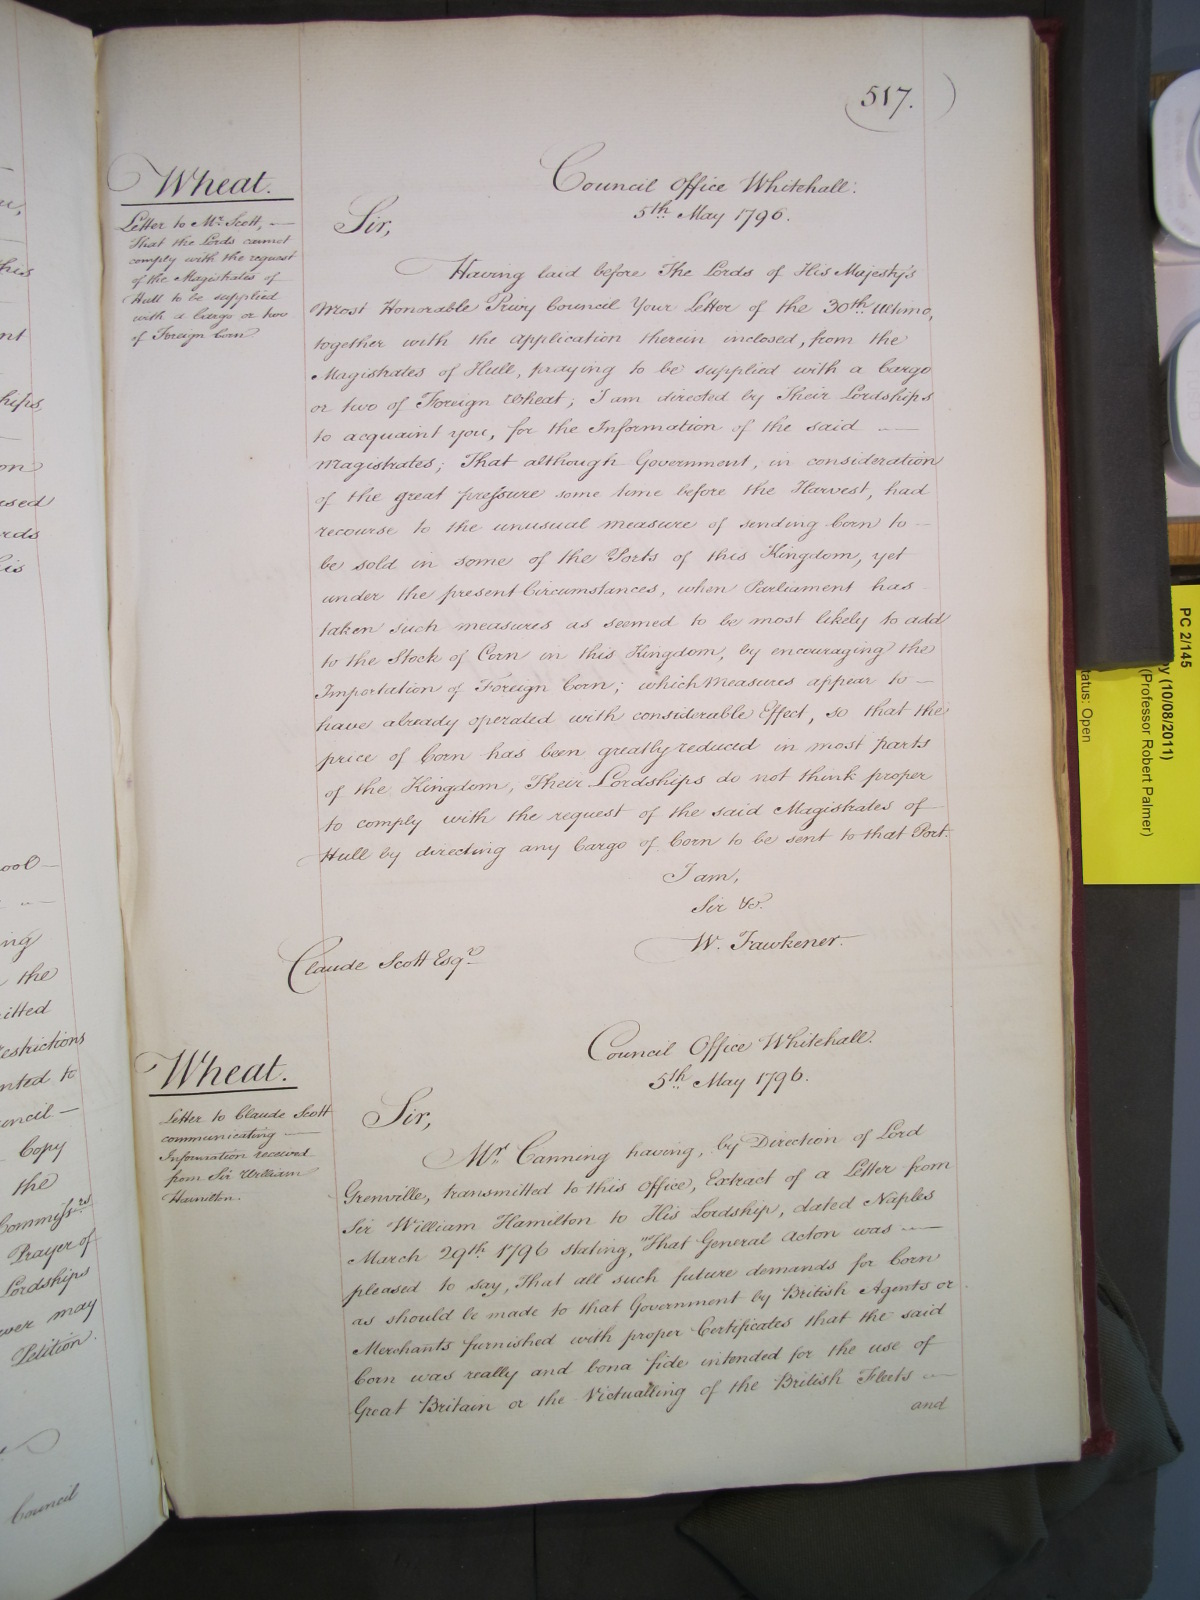 517.
Wheat.
Letter to Mr. Scott, —
That the Lords cannot
comply with the request
of the Magistrates of
Hull to be supplied
with a Cargo or two
of Foreign Corn
Council Office Whitehall.
5th May 1796.
Sir,
Having laid before The Lords of His Majesty's
Most Honorable Privy Council Your Letter of the 30th Ultimo,
together with the application therein inclosed, from the
Magistrates of Hull, praying to be supplied with a Cargo
or two of Foreign Wheat; I am directed by Their Lordships
to acquaint you, for the Information of the said —
Magistrates; That although Government, in consideration
of the great pressure some time before the Harvest, had
recourse to the unusual measure of sending Corn to —
be sold in some of the Ports of this Kingdom, yet
under the present Circumstances, when Parliament has
taken such measures as seemed to be most likely to add
to the Stock of Corn in this Kingdom, by encouraging the
Importation of Foreign Corn; which Measures appear to —
have already operated with considerable Effect, so that the
price of Corn has been greatly reduced in most parts
of the Kingdom, Their Lordships do not think proper
to comply with the request of the said Magistrates of
Hull by directing any Cargo of Corn to be sent to that Port.
I am,
Sir &c.
W. Fawkener.
Claude Scott Esqr.
Wheat.
Letter to Claude Scott
communicating —
Information received
from Sir William
Hamilton.
Council Office Whitehall.
5th May 1796.
Sir,
Mr. Canning having, by Direction of Lord
Grenville, transmitted to this Office, Extract of a Letter from
Sir William Hamilton to His Lordship, dated Naples
March 29th 1796 stating, "That General Acton was —
pleased to say, That all such future demands for Corn
as should be made to that Government by British Agents or
Merchants furnished with proper Certificates that the said
Corn was really and bona fide intended for the use of
Great Britain or the Victualling of the British Fleets —
and
PC 2/145
(10/08/2011)
(Professor Robert Palmer)
atus: Open
nt
on
used
ing
the
itted
estrictions
nted to
uncil —
Copy
the
Commissrs
Prayer of
Lordships
may
Petition.
Council